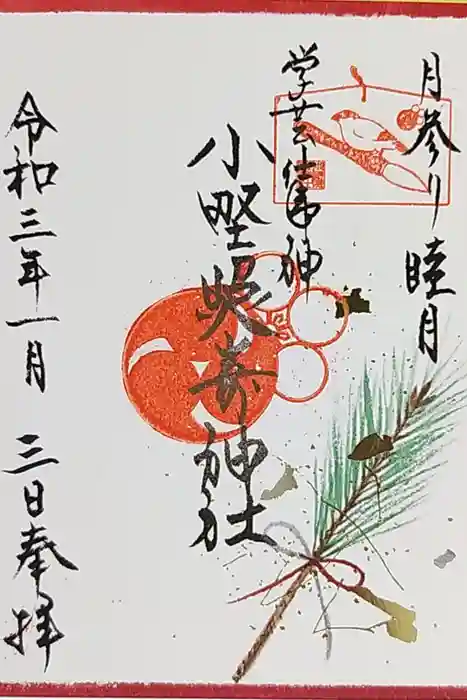 月参り 睦月
学芸 神
小野照崎神社
令和三年一月 三日奉拝